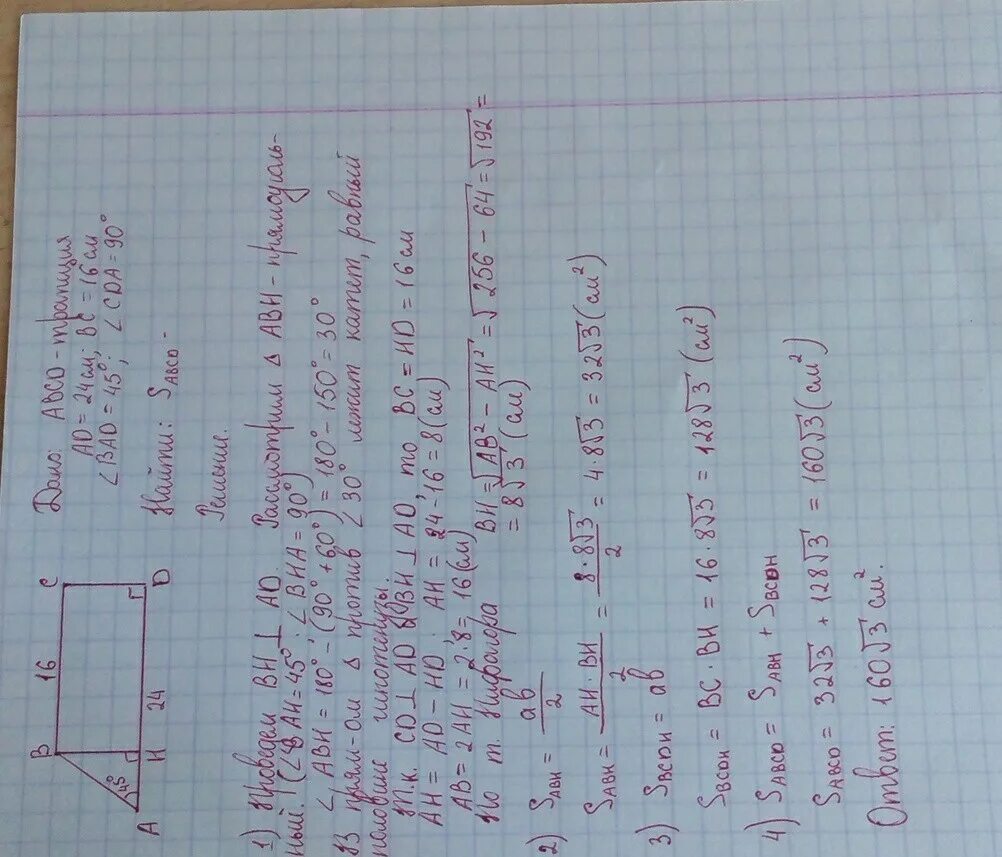 Дано: ABCD - трапеция
AD = 24 см; BC = 16 см
∠BAD = 45°; ∠CDA = 90°
Найти: S_ABCD -
Решение.
B 16 C
45°
A H 24 D
1) Проведем BH ⊥ AD. Рассмотрим △ ABH - прямоуголь-
ный. (∠BAH = 45°; ∠BHA = 90°)
∠ABH = 180° - (90° + 60°) = 180° - 150° = 30°
В прям-ом △ против ∠30° лежит катет, равный
половине гипотенузы.
Т.к. CD ⊥ AD и BH ⊥ AD, то BC = HD = 16 см
AH = AD - HD; AH = 24 - 16 = 8 (см)
AB = 2AH = 2·8 = 16 (см)
По т. Пифагора BH = √AB² - AH² = √256 - 64 = √192 =
= 8√3 (см)
2) S_ABH = ab/2
S_ABH = AH · BH / 2 = 8 · 8√3 / 2 = 4 · 8√3 = 32√3 (см²)
3) S_BCDH = ab
S_BCDH = BC · BH = 16 · 8√3 = 128√3 (см²)
4) S_ABCD = S_ABH + S_BCDH
S_ABCD = 32√3 + 128√3 = 160√3 (см²)
Ответ: 160√3 см².